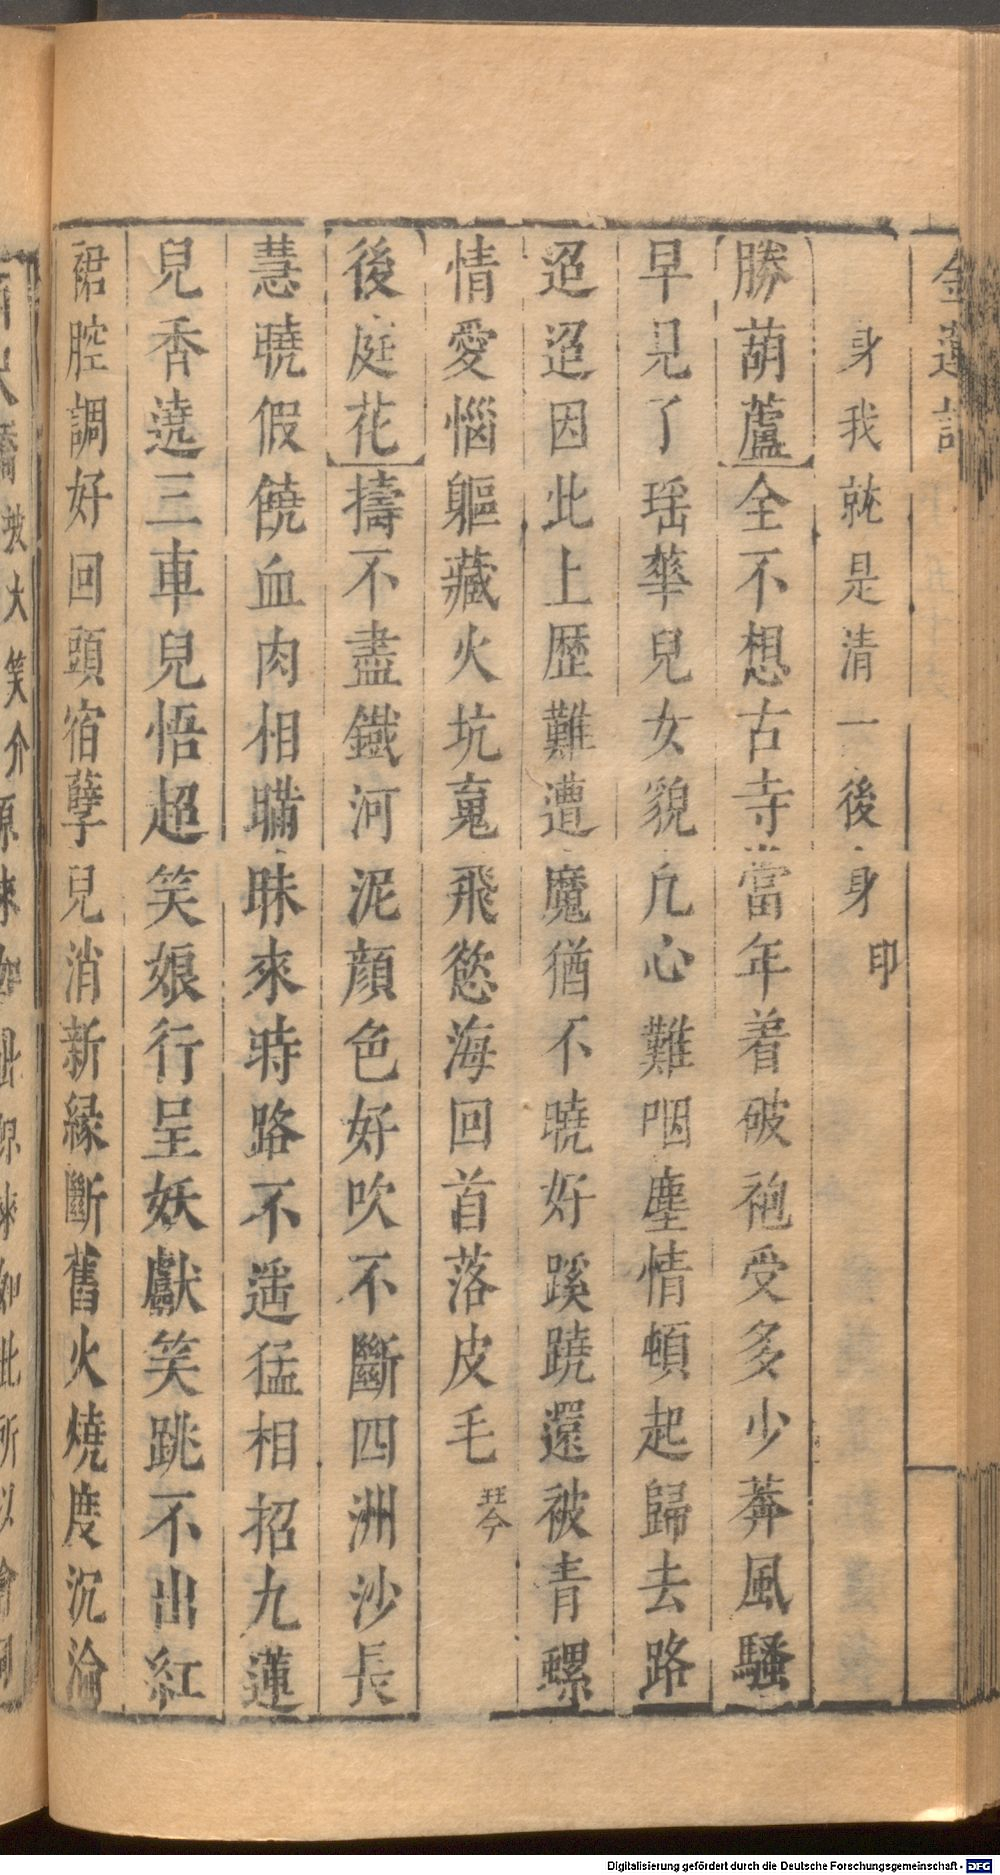 金蓮記
身我就是清一後身印
勝葫蘆全不想古寺當年着破袍受多少莾風騷
早見了瑶華兒女貌凢心難咽塵情頓起歸去路
迢迢因此上歴難遭魔猶不曉好蹊蹺還被青螺
情愛惱軀藏火坑䰟飛慾海回首落皮毛琴
後庭花擣不盡鐵河泥顔色好吹不斷四洲沙長
慧曉假饒血肉相瞞昧來時路不遥猛相招九蓮
兒香遶三車兒悟超笑娘行呈妖獻笑跳不出紅
裙腔調好回頭宿孽兒消新緣斷舊火燒度沉淪
Digitalisierung gefördert durch die Deutsche Forschungsgemeinschaft - DFG